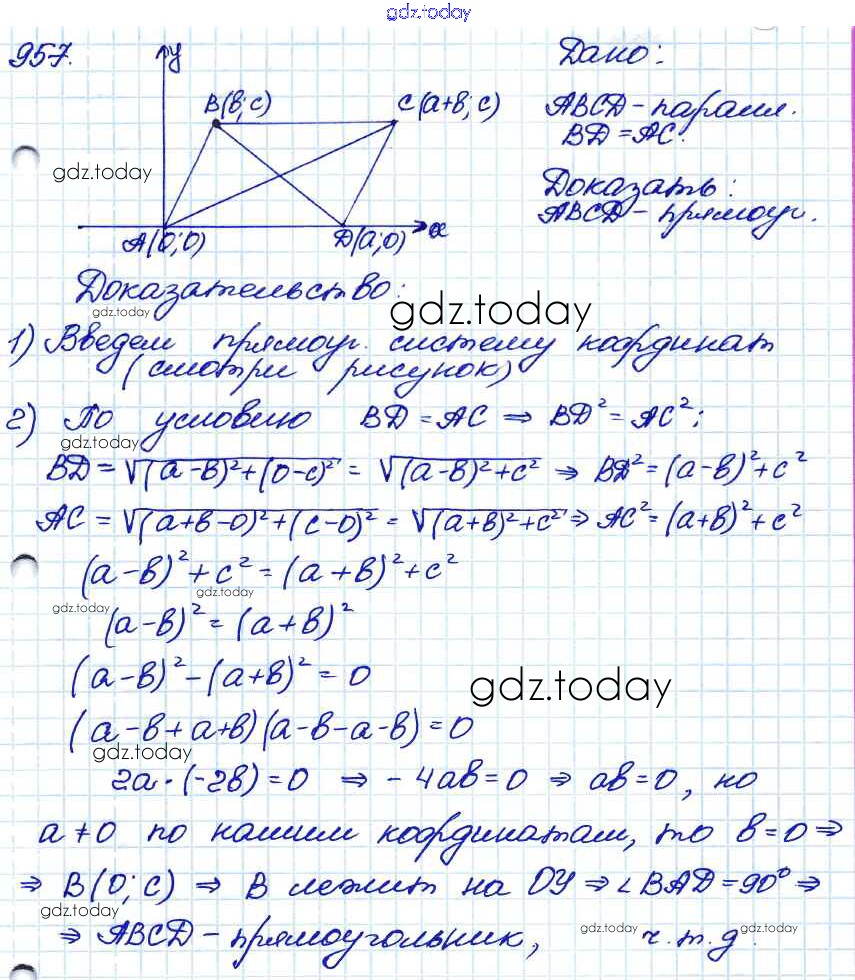 gdz.today
957.
y
Дано:
B(b;c)
C(a+b;c)
ABCD - паралл.
BD = AC.
gdz.today
Доказать:
ABCD - прямоуг.
A(0;0)
D(a;0)
x
Доказательство:
gdz.today
gdz.today
1) Введем прямоуг. систему координат
(смотри рисунок)
2) По условию BD = AC ⇒ BD² = AC²;
gdz.today
BD = √(a-b)²+(0-c)² = √(a-b)²+c² ⇒ BD² = (a-b)²+c²
AC = √(a+b-0)²+(c-0)² = √(a+b)²+c² ⇒ AC² = (a+b)²+c²
(a-b)²+c² = (a+b)²+c²
gdz.today
gdz.today
(a-b)² = (a+b)²
(a-b)² - (a+b)² = 0
gdz.today
(a-b+a+b)(a-b-a-b) = 0
gdz.today
2a·(-2b) = 0 ⇒ -4ab = 0 ⇒ ab = 0, но
a ≠ 0 по нашим координатам, то b = 0 ⇒
⇒ B(0;c) ⇒ B лежит на OY ⇒ ∠BAD = 90° ⇒
gdz.today
⇒ ABCD - прямоугольник, ч.т.д.
gdz.today
gdz.today